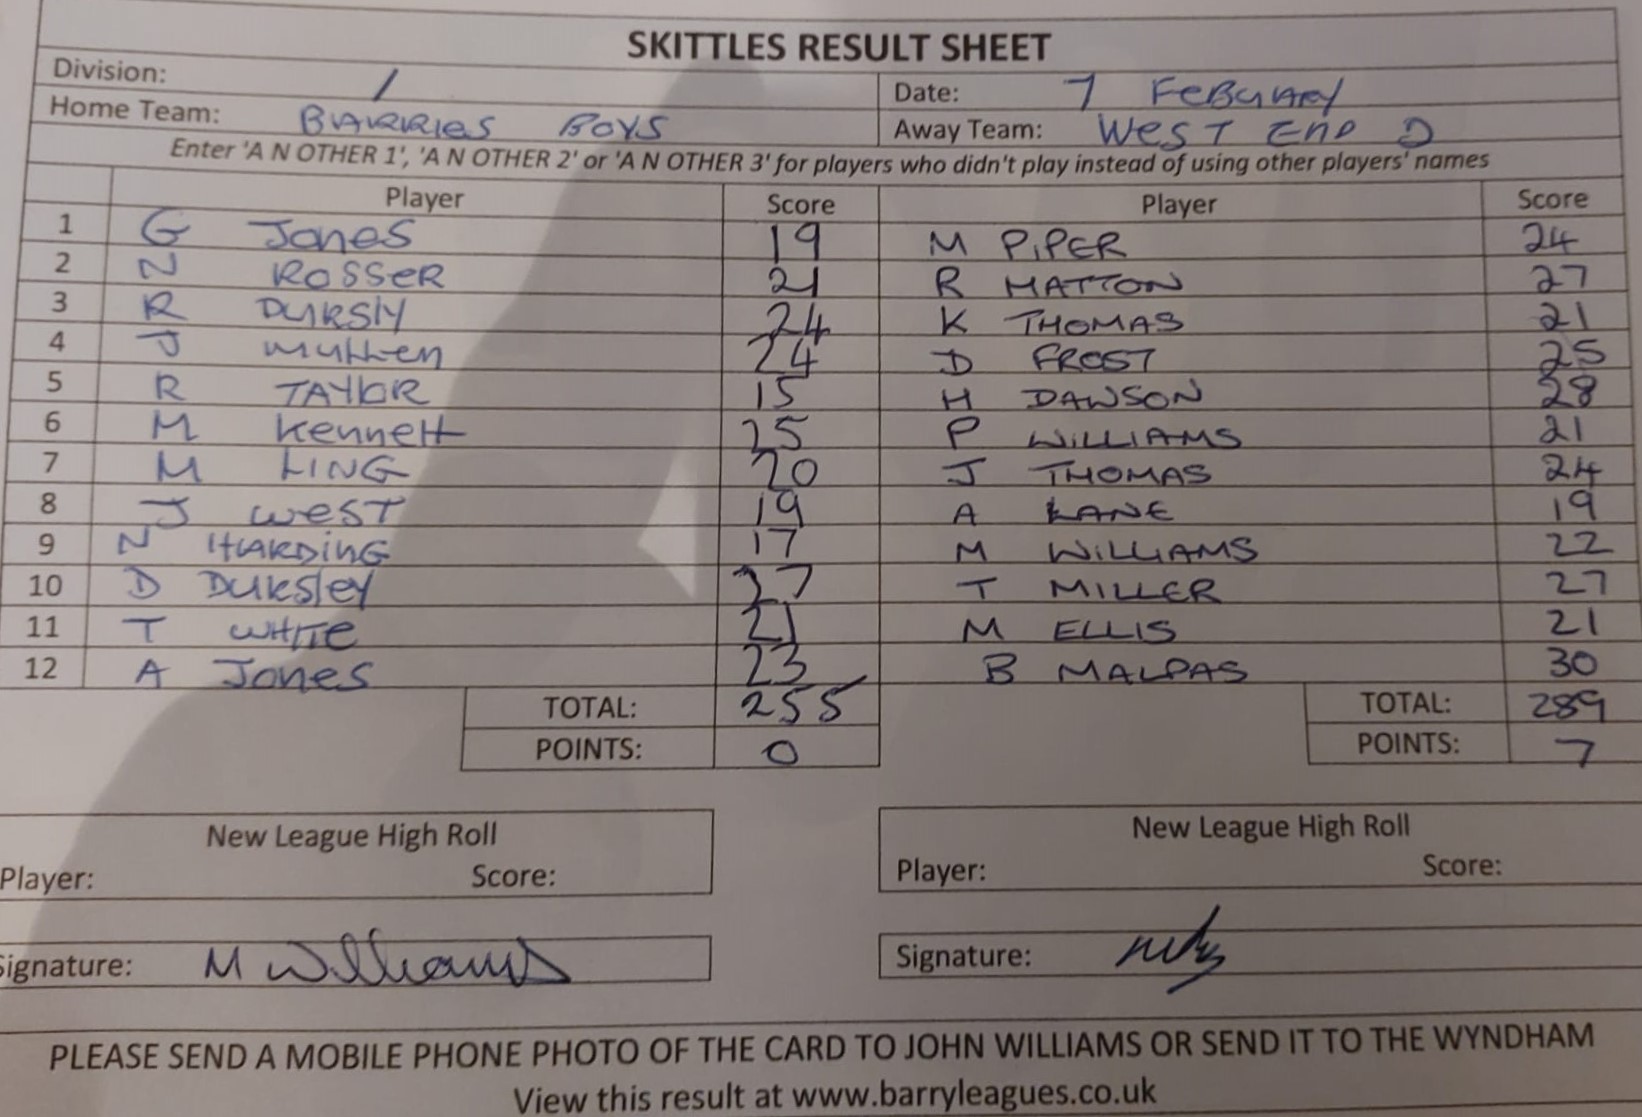 SKITTLES RESULT SHEET
Division: 1 Date: 7 FEBUARY
Home Team: BARRIES BOYS Away Team: WEST END D
Enter 'A N OTHER 1', 'A N OTHER 2' or 'A N OTHER 3' for players who didn't play instead of using other players' names
Player Score Player Score
1 G Jones 19 M PIPER 24
2 N ROSSER 21 R HATTON 27
3 R DURSLY 24 K THOMAS 21
4 J 24 D FROST 25
5 R TAYLOR 15 H DAWSON 28
6 M Kennett 25 P WILLIAMS 21
7 M LING 20 J THOMAS 24
8 J WEST 19 A LANE 19
9 N HARDING 17 M WILLIAMS 22
10 D DURSLEY 27 T MILLER 27
11 T WHITE 21 M ELLIS 21
12 A Jones 23 B MALPAS 30
TOTAL: 255 TOTAL: 289
POINTS: 0 POINTS: 7
New League High Roll New League High Roll
Player: Score: Player: Score:
Signature: M Williams Signature:
PLEASE SEND A MOBILE PHONE PHOTO OF THE CARD TO JOHN WILLIAMS OR SEND IT TO THE WYNDHAM
View this result at www.barryleagues.co.uk